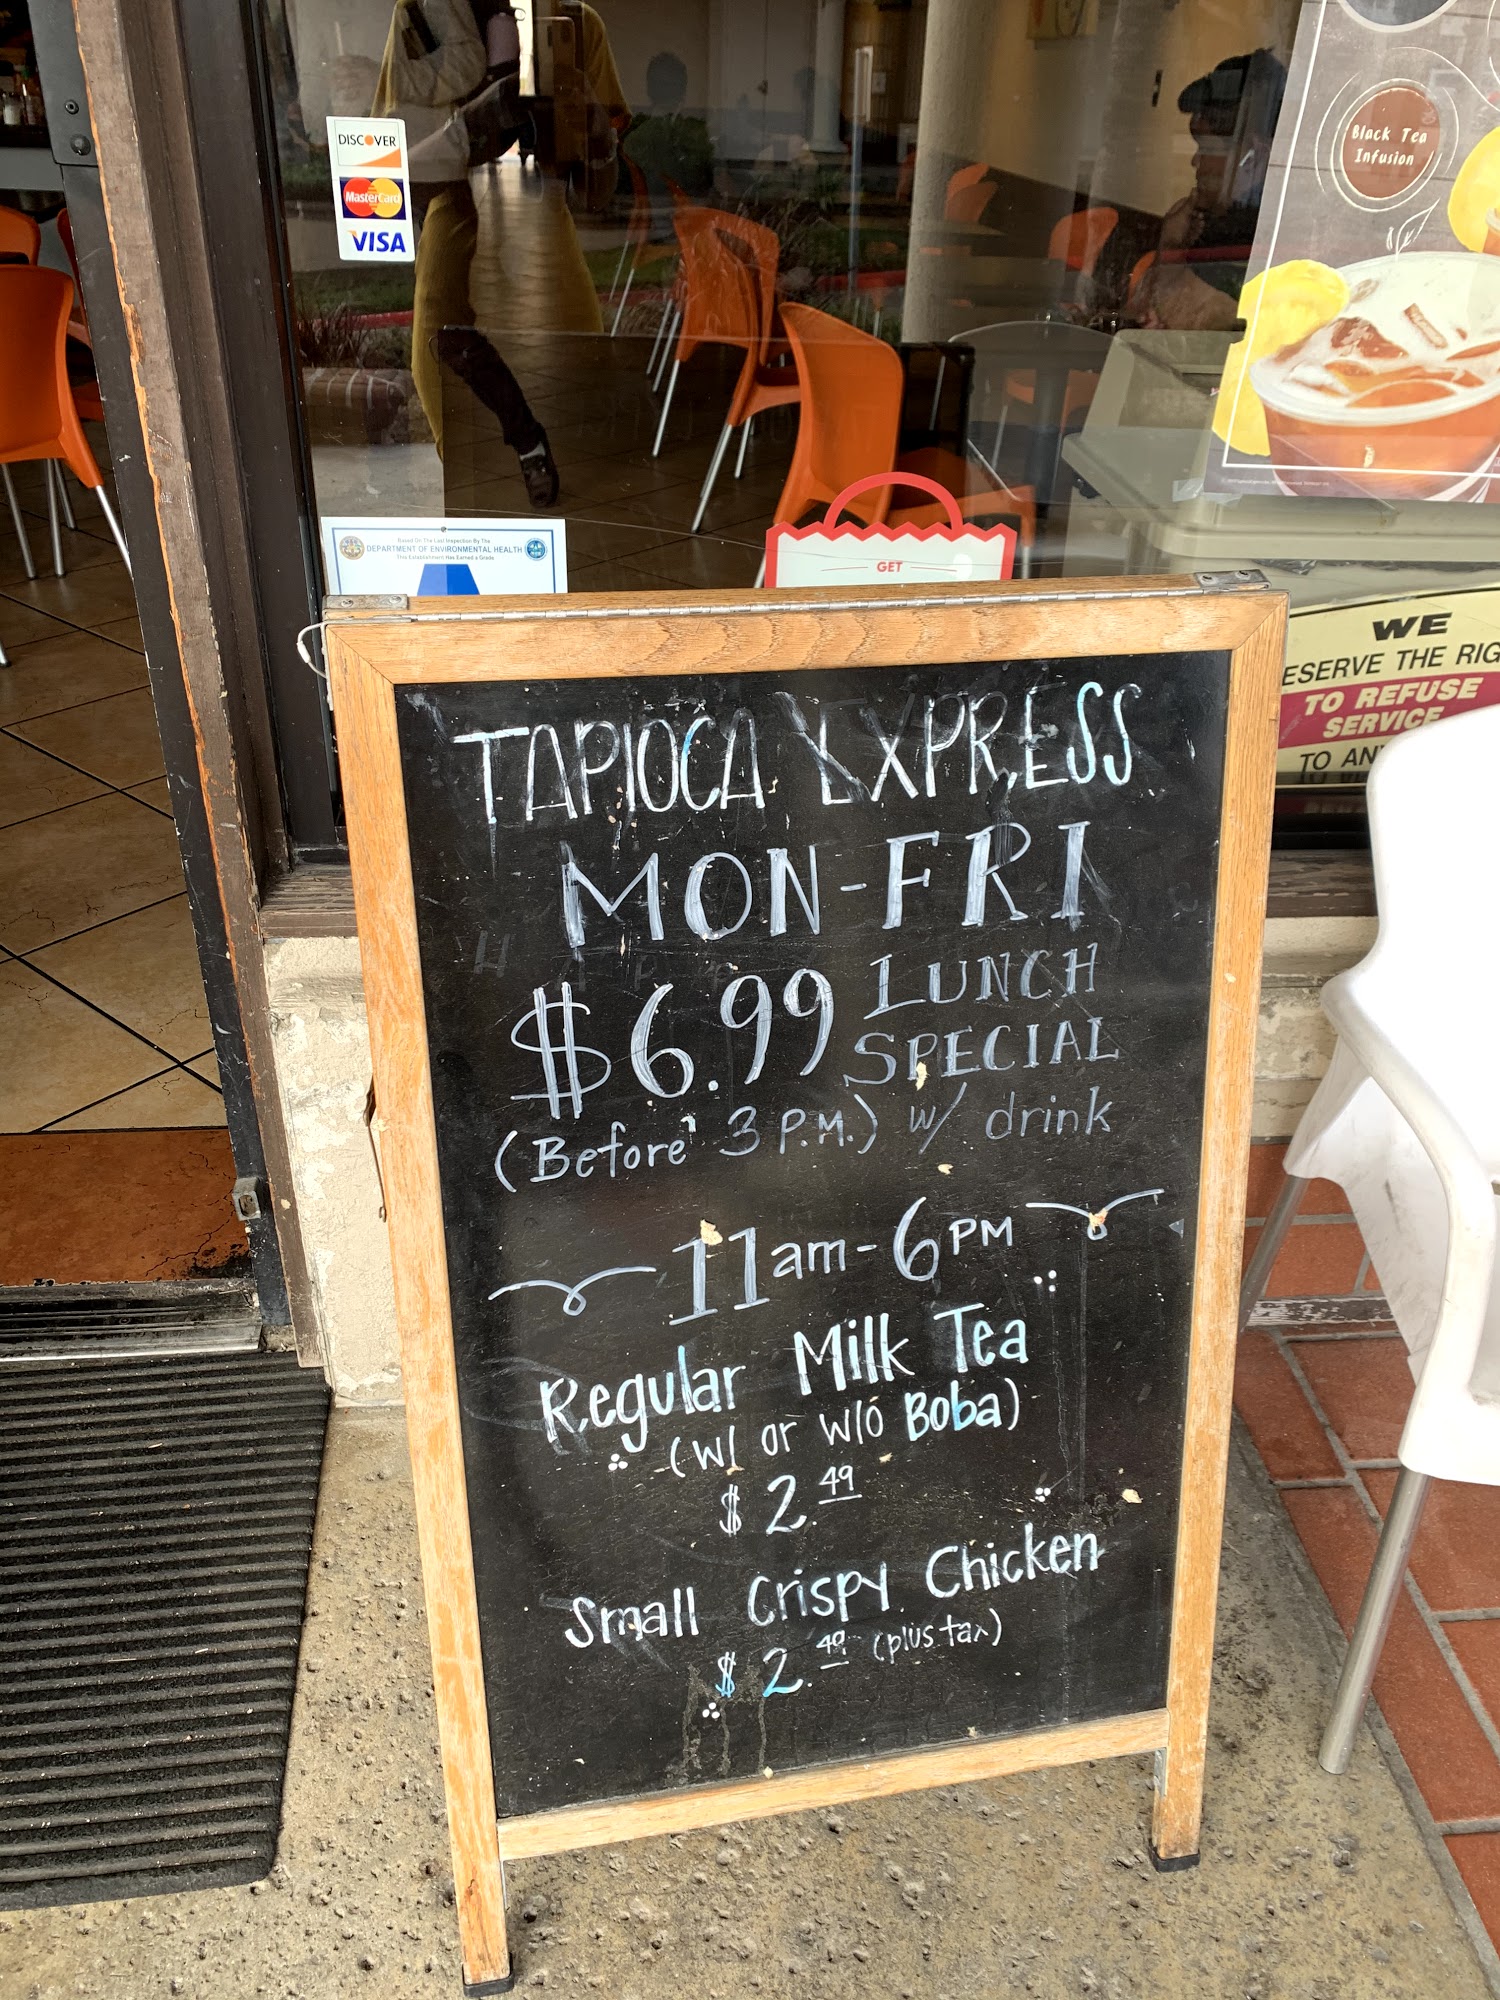 DISCOVER
MasterCard
VISA
Black Tea
Infusion
Based On The Last Inspection By The
DEPARTMENT OF ENVIRONMENTAL HEALTH
This Establishment Has Earned a Grade
A
GET
WE
ESERVE THE RIG
TO REFUSE
SERVICE
TO AN
TAPIOCA EXPRESS
MON-FRI
$6.99 LUNCH
SPECIAL
(Before 3 P.M.) w/ drink
11am-6PM
Regular Milk Tea
(w/ or w/o Boba)
$2.49
Small Crispy Chicken
$2.49 (plus tax)